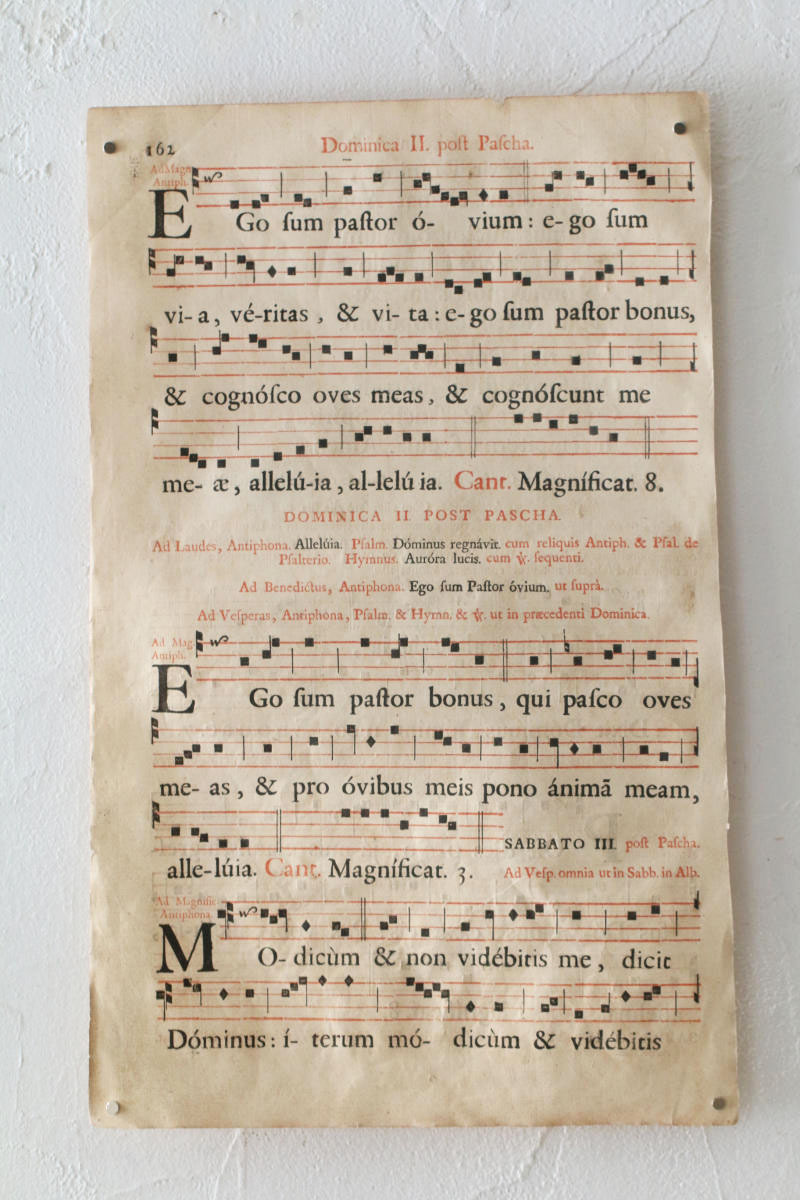 162
Dominica II. poſt Paſcha.
Ad Magn.
Antiph.
EGo ſum paſtor ó- vium: e-go ſum
vi-a, vé-ritas, & vi-ta: e-go ſum paſtor bonus,
& cognóſco oves meas, & cognóſcunt me
me-æ, allelú-ia, al-lelúia. Cant. Magníficat. 8.
DOMINICA II POST PASCHA.
Ad Laudes, Antiphona. Allelúia. Pſalm. Dóminus regnávit. cum reliquis Antiph. & Pſal. de
Pſalterio. Hymnus. Auróra lucis. cum ℣. ſequenti.
Ad Benedictus, Antiphona. Ego ſum Paſtor óvium. ut ſuprà.
Ad Veſperas, Antiphona, Pſalm. & Hymn. & ℣. ut in præcedenti Dominica.
Ad Mag.
Antiph.
EGo ſum paſtor bonus, qui paſco oves
me-as, & pro óvibus meis pono ánimā meam,
SABBATO III. poſt Paſcha.
alle-lúia. Cant. Magníficat. 3. Ad Veſp. omnia ut in Sabb. in Alb.
Ad Magnific.
Antiphona.
MO-dicùm & non vidébitis me, dicit
Dóminus: í-terum mó- dicùm & vidébitis